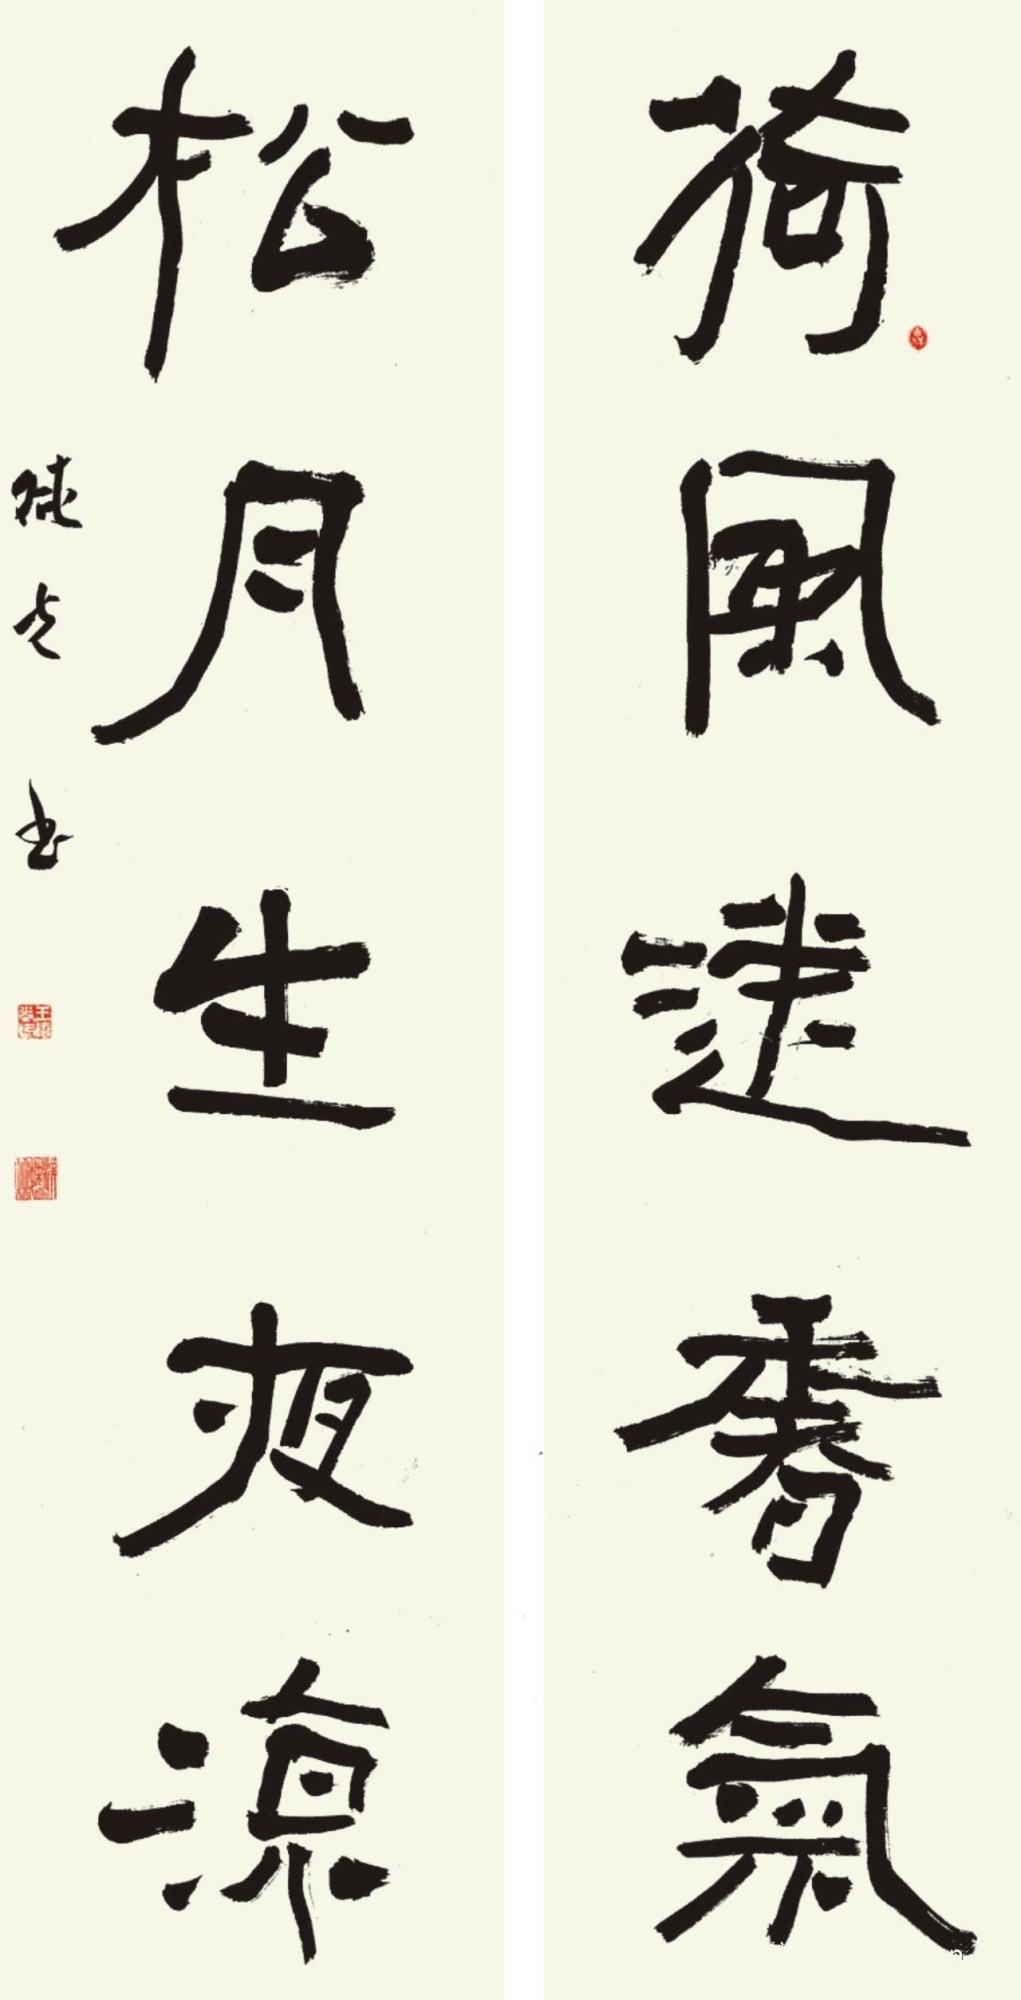 荷風送香氣
松月生夜涼
光书